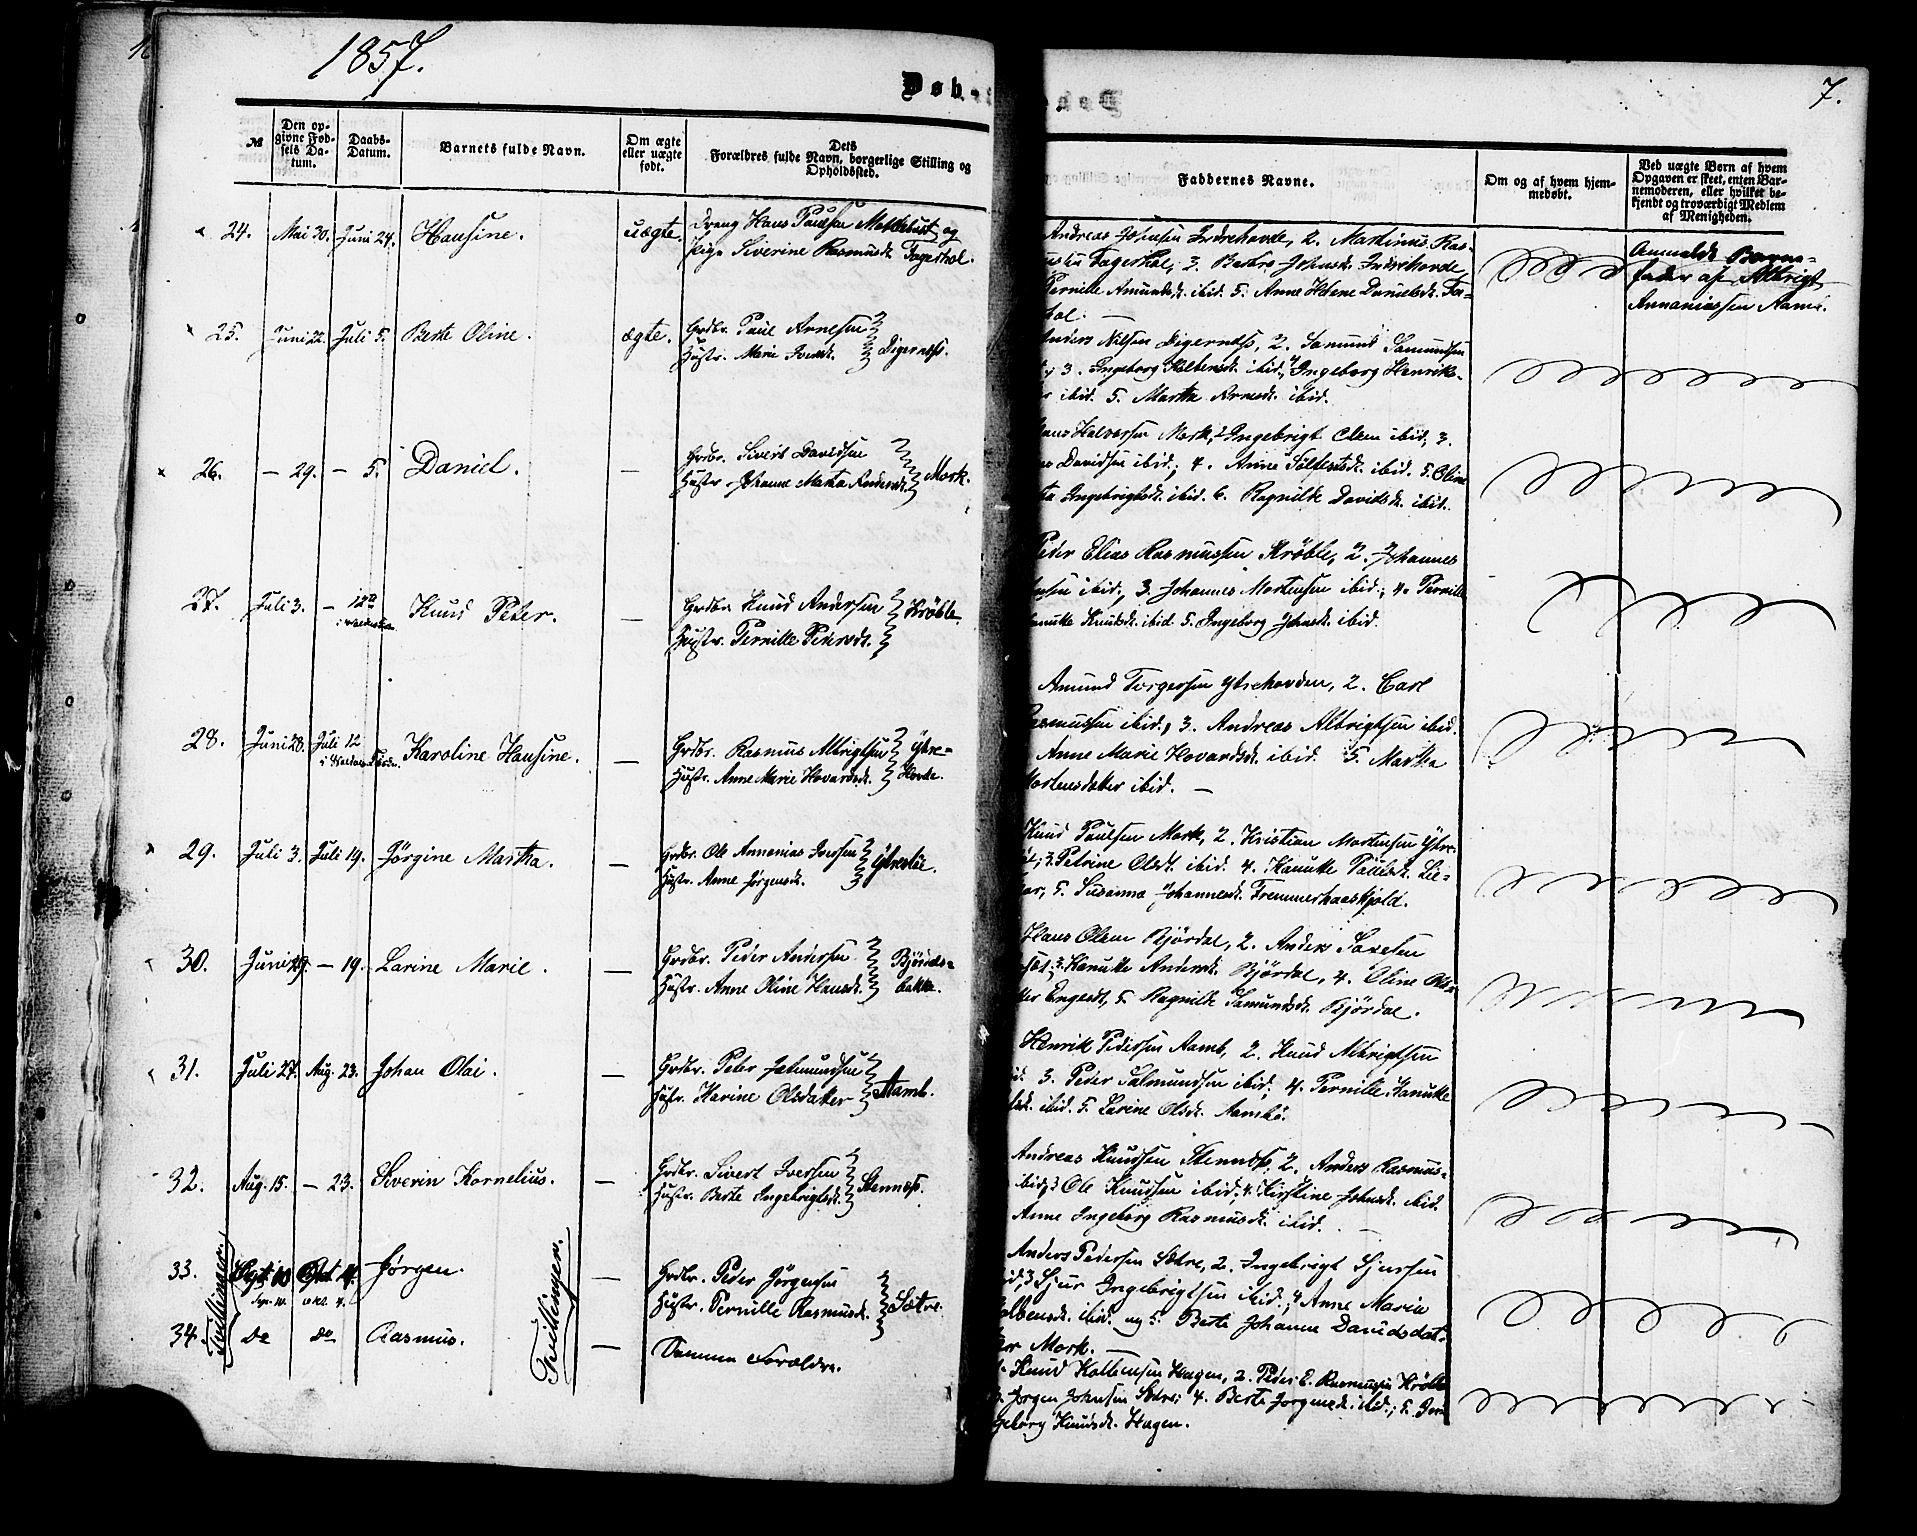 1857.
7.
Døbt
№
Den opgivne Fødsels Datum.
Daabs-Datum.
Barnets fulde Navn.
Om ægte eller uægte født.
Dets Forældres fulde Navn, borgerlige Stilling og Opholdssted.
Faddernes Navne.
Om og af hvem hjemmedøbt.
Ved uægte Børn af hvem Opgaven er skeet, enten Barnemoderen, eller hvilket bekjendt og troværdigt Medlem af Menigheden.
24. Mai 30. Juni 24. Hansine. uægte. Dreng Hans Paulsen Mollebust og
Pige Siverine Rasmusdt. Fagerhol.
Andreas Johnsen Indrehovde, 2. Martinus Ras-
Fagerhol, 3. Berthe Johnsdt. Indrehovde,
Pernille Amundsdt. ibid. 5. Anne Helene Danielsdt. Fa-
hol.
Anmeldt Barne-
fader af Albrigt
Annaniassen Aamb.
25. Juni 22. Juli 5. Berte Oline. ægte. Grdbr. Paul Arnesen
Hustr. Marie Iversdt. Digernæss.
Anders Nilsen Digernæss, 2. Samund Samundsen
3. Ingeborg Kolbensdt. ibid., 4 Ingeborg Henriks-
ibid. 5. Martha Arnesdt. ibid.
26. — 29. — 5. Daniel. — Grdbr. Sivert Davidsen
Hustr. Johanne Marta Andersdt. Mork.
Hans Halvorsen Mork, 2 Ingebrigt Olsen ibid, 3.
Davidsen ibid; 4. Anne Sølfestsdt. ibid. 5. Oline
Ingebrigtsdt. ibid. 6. Ragnilde Davidsdt. ibid.
27. Juli 3. — 12te Knud Peter. — Grdbr. Knud Andersen
Hustr. Pernille Pedersdt. Krøble.
Peder Elias Rasmussen Krøble, 2. Johannes
ibid, 3. Johannes Mortensen ibid; 4. Pernille
Hanikke Knudsdt. ibid 5. Ingeborg Johnsdt. ibid.
28. Juni 28. Juli 12 Karoline Hansine. — Grdbr. Rasmus Albrigtsen
Hustr. Anne Marie Hovardsdt. Ytre-
Hovde.
Amund Torgersen Ytrehovden, 2. Carl
Rasmussen ibid, 3. Andreas Albrigtsen ibid.
Anne Marie Hovardsdt. ibid 5. Martha
Mortensdatter ibid. —
29. Juli 3. Juli 19. Jørgine Martha. — Grdbr. Ole Annanias Iversen
Hustr. Anne Jørgensdt. Ytrestøe.
Knud Paulsen Mork, 2. Kristian Mortensen Ytre-
3. Petrine Olsdt. ibid. 4. Hanikke Paulsdt. Lie-
5. Susanna Johannesdt. Fremmerhaaskjold.
30. Juni 29. — 19. Larine Marie. — Grdbr. Peder Andersen
Hustr. Anne Oline Hansdt. Bjørds-
bakke.
Hans Olsen Bjørdal, 2. Anders
3. Hanikke Andersdt. Bjørdal, 4. Oline Ols-
Engeset, 5. Ragnilde Samundsdt. Bjørdal.
31. Juli 27. Aug. 23. Johan Olai. — Grdbr. Peter Jetmundsen
Hustr. Karine Olsdatter Aamb.
Henrik Pedersen Aamb, 2. Knud Albrigtsen
3. Peder Salmundsen ibid; 4. Pernille Hanikke
ibid. 5. Larine Olsdt. Aambø.
32. Aug. 15. — 23. Siverin Kornelius. — Grdbr. Sivert Iversen
Hustr. Berte Ingebrigtsdt. Stennæs.
Andreas Knudsen Stennæs, 2. Anders Rasmus-
ibid, 3 Ole Knudsen ibid; 4. Kirstine Johnsdt. ibid.
Anne Ingeborg Rasmusdt. ibid. —
Tvillinger.
33. Sept. 10 Okt. 4. Jørgen. Tvillinger. — Grdbr. Peder Jørgensen
Sept. 10. Okt. 4. Hustr. Pernille Rasmusdt. Sætre
Anders Pedersen Sætre, 2. Ingebrigt Sjursen
3 Sjur Ingebrigtsen ibid; 4 Anne Marie
ibid. og 5. Berte Johanne Davidsdat-
Mork. —
34. do do Rasmus. — Samme Forældre.
Knud Kolbensen Hagen, 2. Peder E. Rasmussen Krøble
Jørgen Johnsen Sætre; 4. Berte Jørgensdt. ibid; 5.
Knudsdt. Hagen.